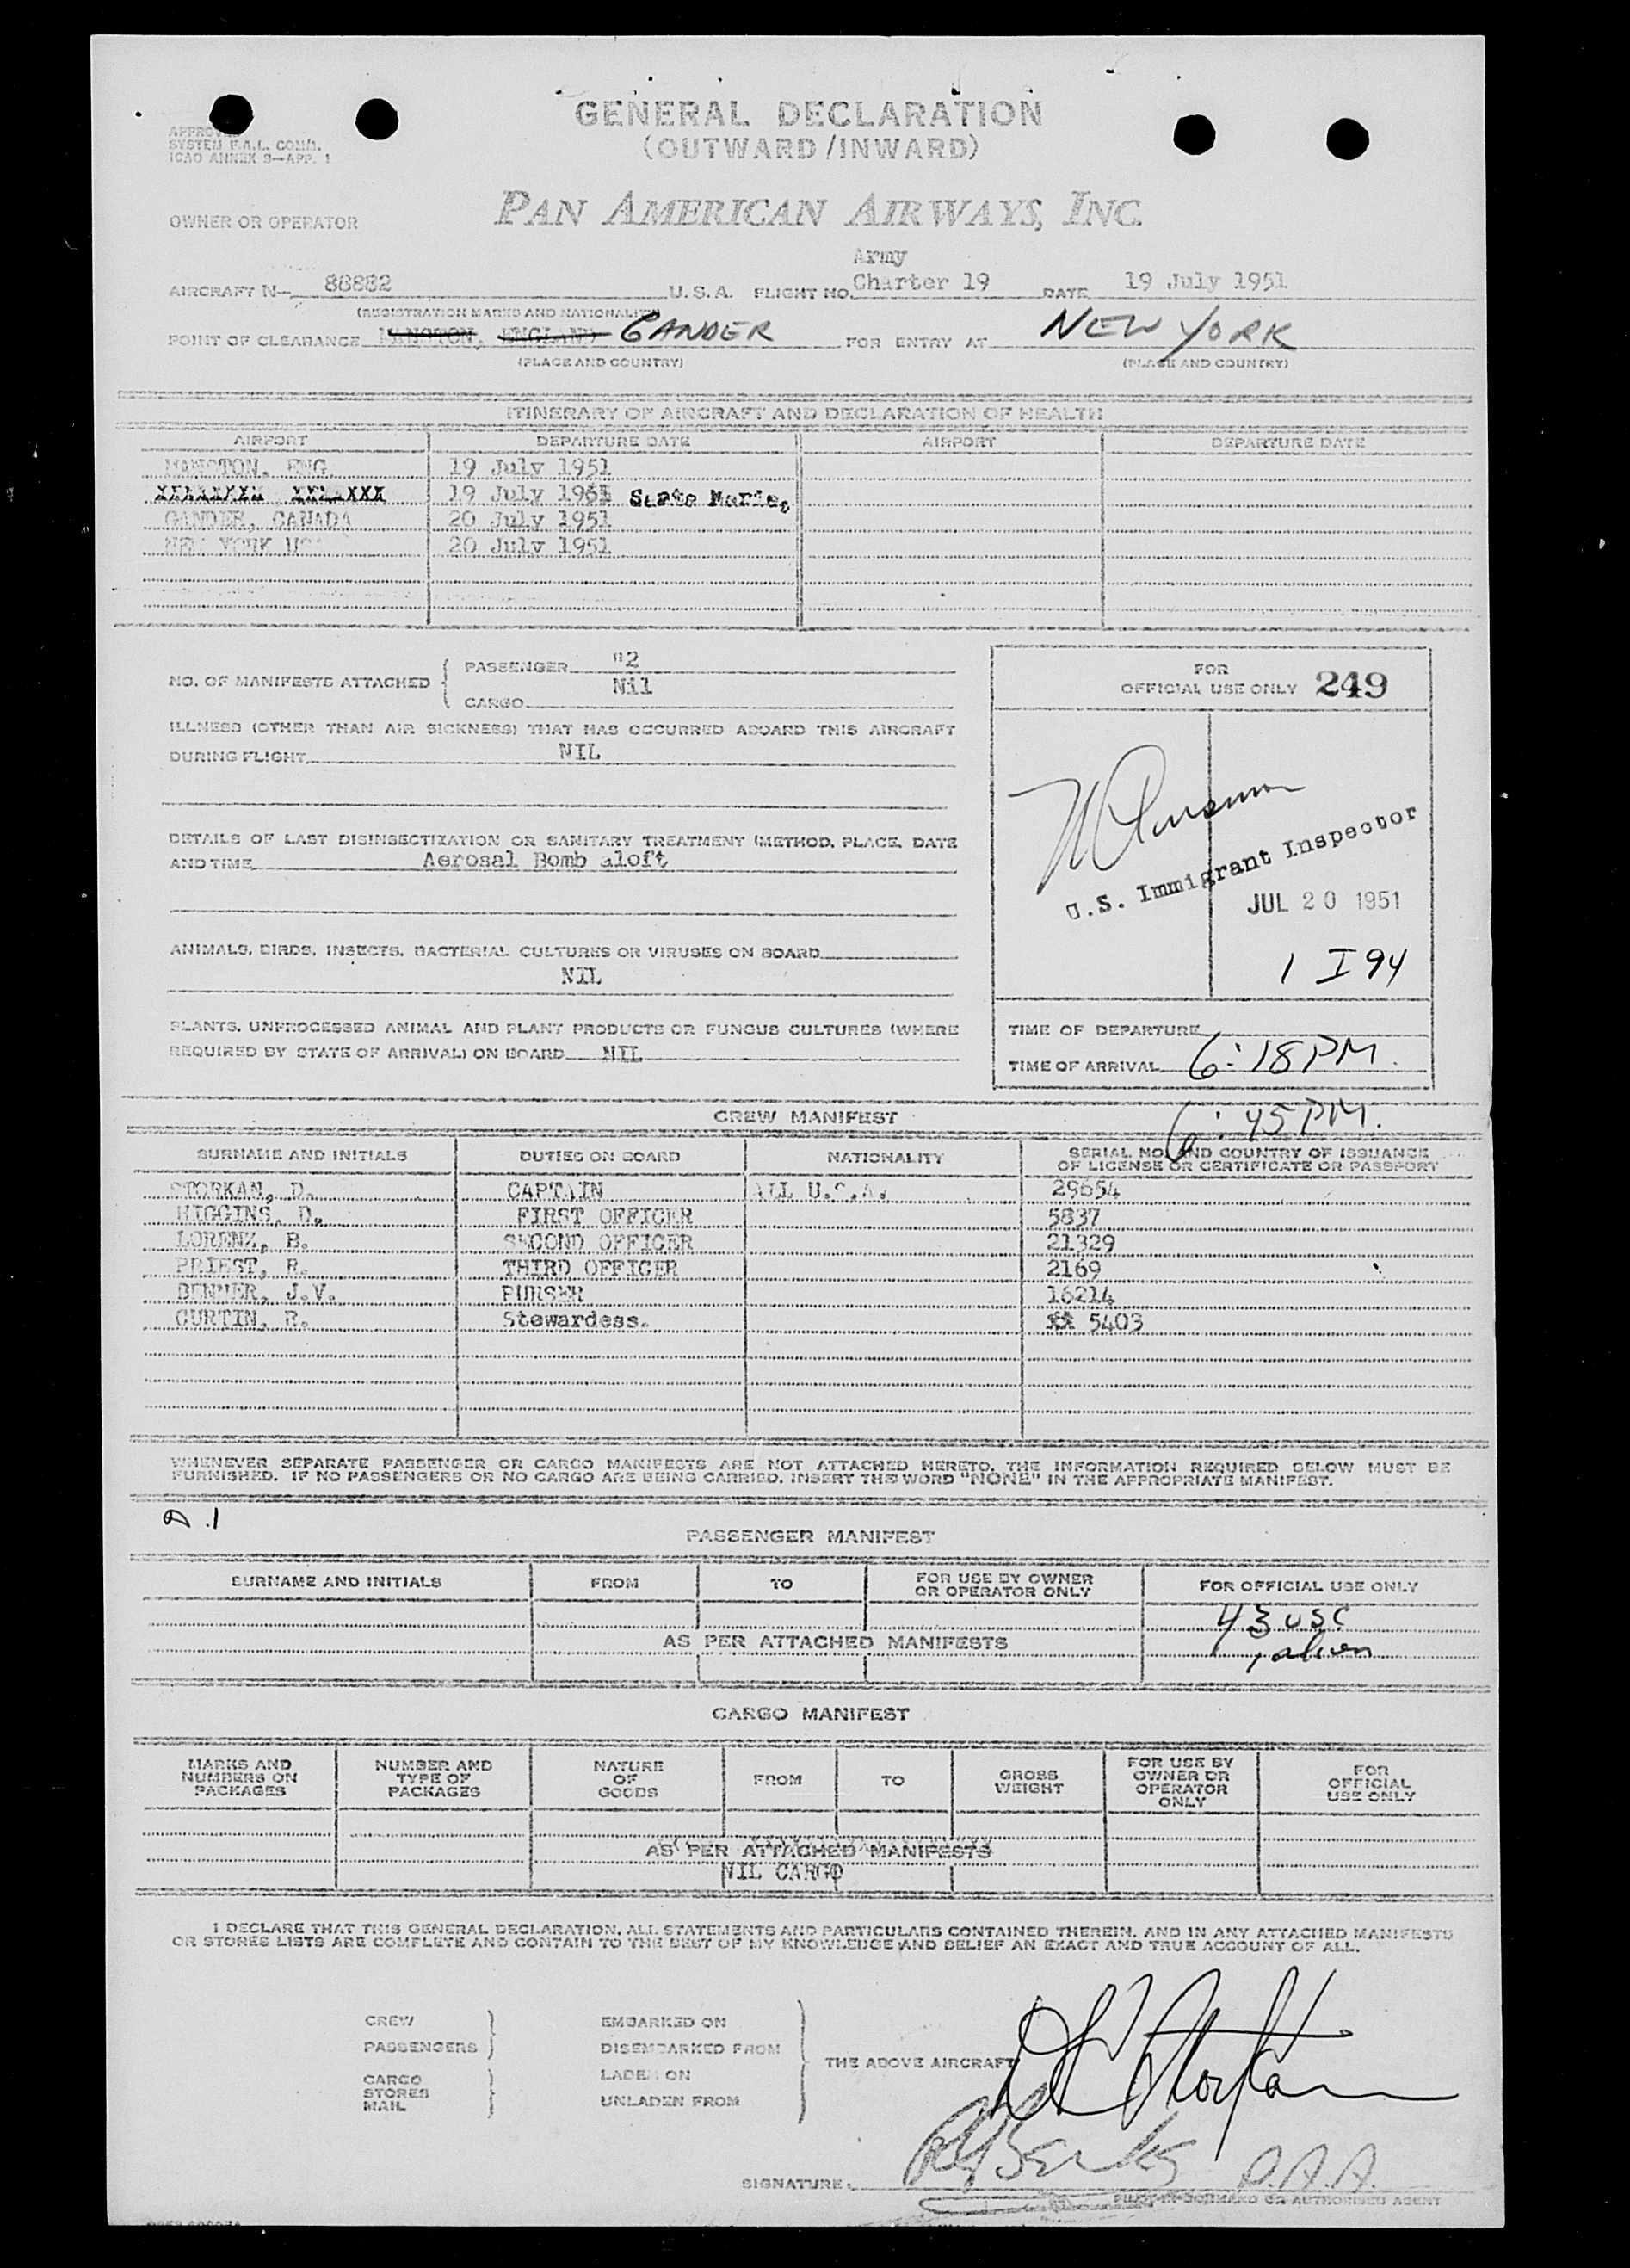 GENERAL DECLARATION
(OUTWARD/INWARD)
SYSTEM F.A.L. COMM.
ICAO ANNEX 9—APP. 1
OWNER OR OPERATOR PAN AMERICAN AIRWAYS, INC.
Army
AIRCRAFT N— 88882 U.S.A. FLIGHT NO. Charter 19 DATE 19 July 1951
(REGISTRATION MARKS AND NATIONALITY)
POINT OF CLEARANCE MANSTON, ENGLAND GANDER FOR ENTRY AT NEW YORK
(PLACE AND COUNTRY) (PLACE AND COUNTRY)
ITINERARY OF AIRCRAFT AND DECLARATION OF HEALTH
AIRPORT DEPARTURE DATE AIRPORT DEPARTURE DATE
MANSTON, ENG 19 July 1951
19 July 1951 Santa Maria,
GANDER, CANADA 20 July 1951
NEW YORK USA 20 July 1951
NO. OF MANIFESTS ATTACHED PASSENGER "2
CARGO Nil
FOR
OFFICIAL USE ONLY 249
ILLNESS (OTHER THAN AIR SICKNESS) THAT HAS OCCURRED ABOARD THIS AIRCRAFT
DURING FLIGHT NIL
DETAILS OF LAST DISINSECTIZATION OR SANITARY TREATMENT (METHOD, PLACE, DATE
AND TIME Aerosal Bomb aloft
U.S. Immigrant Inspector
JUL 20 1951
1 I 94
ANIMALS, BIRDS, INSECTS, BACTERIAL CULTURES OR VIRUSES ON BOARD
NIL
PLANTS, UNPROCESSED ANIMAL AND PLANT PRODUCTS OR FUNGUS CULTURES (WHERE
REQUIRED BY STATE OF ARRIVAL) ON BOARD NIL
TIME OF DEPARTURE
TIME OF ARRIVAL 6:18 PM.
6:45 PM.
CREW MANIFEST
SURNAME AND INITIALS DUTIES ON BOARD NATIONALITY SERIAL NO. AND COUNTRY OF ISSUANCE
OF LICENSE OR CERTIFICATE OR PASSPORT
STORKAN, D. CAPTAIN ALL U.S.A. 29654
HIGGINS, D. FIRST OFFICER 5837
LORENZ, B. SECOND OFFICER 21329
PRIEST, R. THIRD OFFICER 2169
BENNER, J.V. PURSER 16214
CURTIN, R. Stewardess. 5403
WHENEVER SEPARATE PASSENGER OR CARGO MANIFESTS ARE NOT ATTACHED HERETO, THE INFORMATION REQUIRED BELOW MUST BE
FURNISHED. IF NO PASSENGERS OR NO CARGO ARE BEING CARRIED, INSERT THE WORD "NONE" IN THE APPROPRIATE MANIFEST.
PASSENGER MANIFEST
SURNAME AND INITIALS FROM TO FOR USE BY OWNER
OR OPERATOR ONLY FOR OFFICIAL USE ONLY
43 USC
AS PER ATTACHED MANIFESTS
1 alien
CARGO MANIFEST
MARKS AND
NUMBERS ON
PACKAGES
NUMBER AND
TYPE OF
PACKAGES
NATURE
OF
GOODS
FROM
TO
GROSS
WEIGHT
FOR USE BY
OWNER OR
OPERATOR
ONLY
FOR
OFFICIAL
USE ONLY
AS PER ATTACHED MANIFESTS
NIL CARGO
I DECLARE THAT THIS GENERAL DECLARATION, ALL STATEMENTS AND PARTICULARS CONTAINED THEREIN, AND IN ANY ATTACHED MANIFESTS
OR STORES LISTS ARE COMPLETE AND CONTAIN TO THE BEST OF MY KNOWLEDGE AND BELIEF AN EXACT AND TRUE ACCOUNT OF ALL.
CREW EMBARKED ON
PASSENGERS DISEMBARKED FROM
THE ABOVE AIRCRAFT
CARGO LADEN ON
STORES
MAIL UNLADEN FROM
SIGNATURE P.A.A.
PILOT-IN-COMMAND OR AUTHORISED AGENT